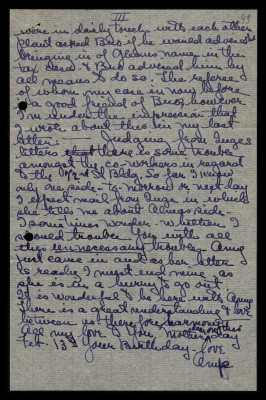 III
were in daily touch with each other
Clant asked Bros if he would advise
bringing in of Orleans name in the
tax case & Bros advised him by
all means to do so. The referee
of whom my case is now before
is a good friend of Bros, however
I'm under the impression that
I wrote about this in my last
letter. Judging from Inge's
letter that there is some trouble
amongst the co-workers in regard
to the 72nd St Bldg. So far I know
only one side - to-morrow or next day
I expect mail from Inge in which
she tells me about things
I sometimes wonder whether I
caused trouble. You with all
this unnecessary trouble. Amy
just came in and as her letter
is ready I must end mine, as
she is in a hurry to go out
It is wonderful to be here with Amy
There is a great understanding & love
between us therefore harmony
All my love to You, Mother
Feb. 13th Your Birthday love